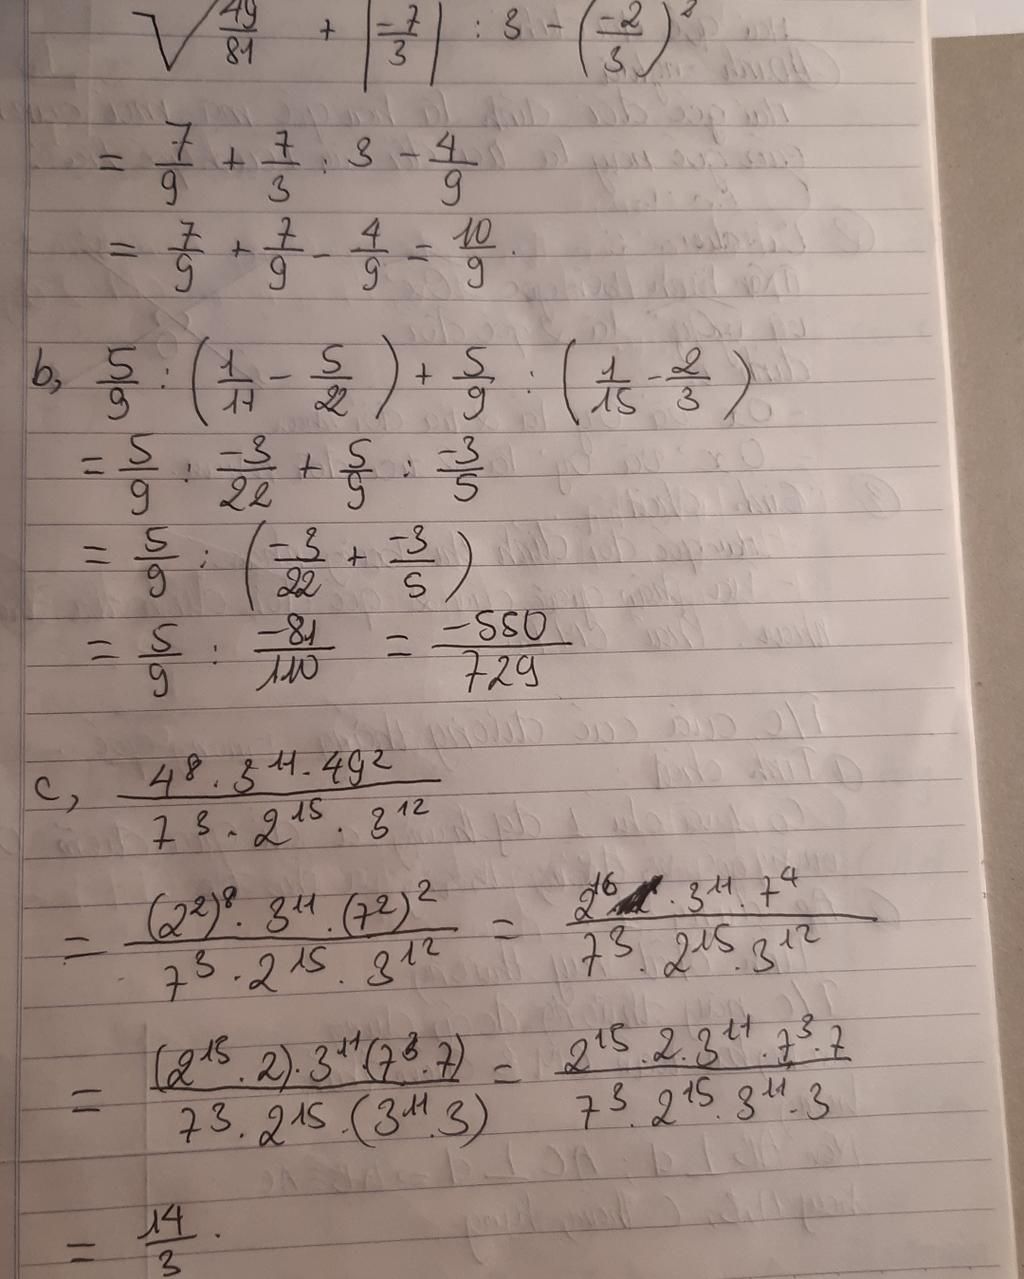 √49/81 + |-7/3| : 3 - (-2/3)²
= 7/9 + 7/3 : 3 - 4/9
= 7/9 + 7/9 - 4/9 = 10/9.
b, 5/9 : (1/11 - 5/22) + 5/9 : (1/15 - 2/3)
= 5/9 : -3/22 + 5/9 : -3/5
= 5/9 : (-3/22 + -3/5)
= 5/9 : -81/110 = -550/729
c, 4⁸ · 3¹¹ · 49² / 7³ · 2¹⁵ · 3¹²
= (2²)⁸ · 3¹¹ · (7²)² / 7³ · 2¹⁵ · 3¹² = 2¹⁶ · 3¹¹ · 7⁴ / 7³ · 2¹⁵ · 3¹²
= (2¹⁵ · 2) · 3¹¹ (7³ · 7) / 7³ · 2¹⁵ · (3¹¹ · 3) = 2¹⁵ · 2 · 3¹¹ · 7³ · 7 / 7³ · 2¹⁵ · 3¹¹ · 3
= 14/3.